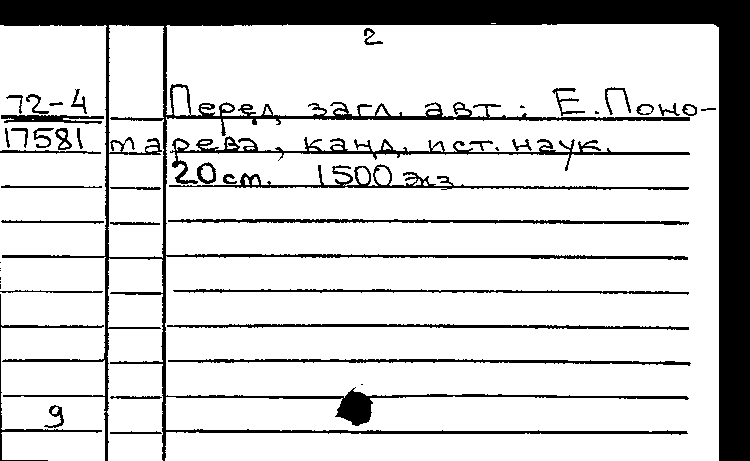 2
72-4 Перед загл. авт.: Е.Поно-
17581 тарева, канд. ист. наук.
20 см. 1500 экз.
9